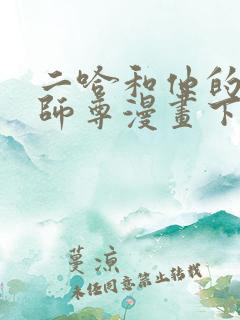 二哈和他的
師尊漫畫下
蔓涼
未经同意禁止转载